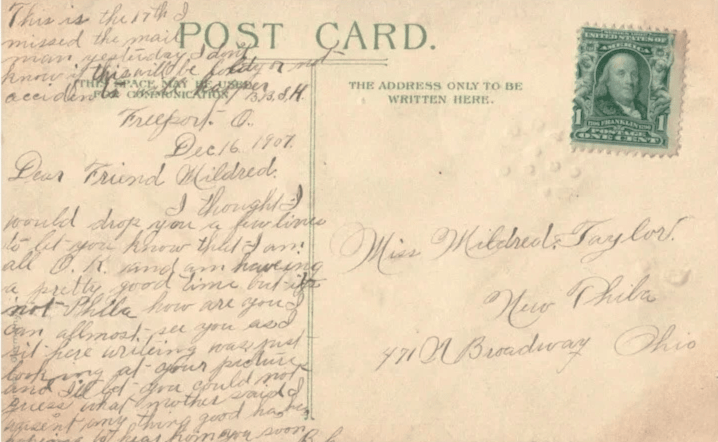 This is the 17th I
missed the mail
man yesterday I dont
know if this will be or not
POST CARD.
THIS SPACE MAY BE USED
FOR COMMUNICATION
THE ADDRESS ONLY TO BE
WRITTEN HERE.
UNITED STATES OF
AMERICA
FRANKLIN
1 POSTAGE 1
ONE CENT
Freeport. O.
Dec 16 1907.
Dear Friend Mildred.
I thought I
would drop you a few lines
to let you know that I am
all O. K. and am haveing
a pretty good time but its
not Phila how are you I
can allmost see you as I
sit here writeing was just
looking at your picture
and I'll bet you could not
guess what mother said I
any thing good
to hear from you soon
Miss Mildred Taylor.
New Phila
471 N Broadway Ohio